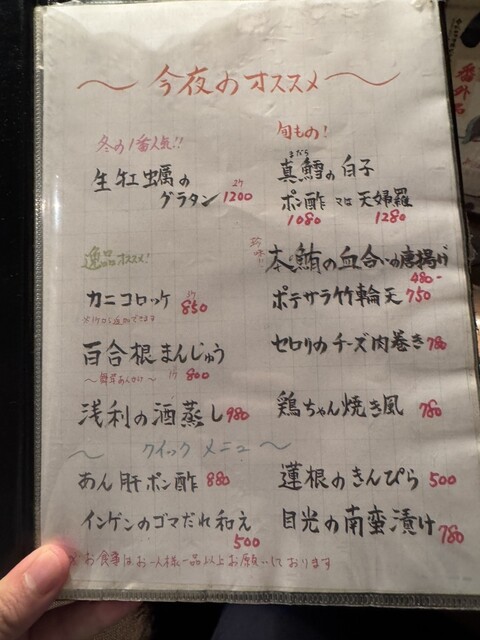 ～今夜のオススメ～
冬の1番人気!!
生牡蠣の
グラタン 2ケ 1200
逸品オススメ!
カニコロッケ 1ケ 850
百合根まんじゅう
1ケ 800
浅利の酒蒸し 980
旬もの!
まだら
真鱈の白子
ポン酢 又は 天婦羅
1080 1280
珍味!!
本鮪の血合いの唐揚げ
480-
ポテサラ竹輪天 750
セロリのチーズ肉巻き 780
鶏ちゃん焼き風 780
～クイックメニュー～
あん肝ポン酢 880
インゲンのゴマだれ和え
500
蓮根のきんぴら 500
目光の南蛮漬け 780
※お食事はお一人様一品以上お願いしております
番外品